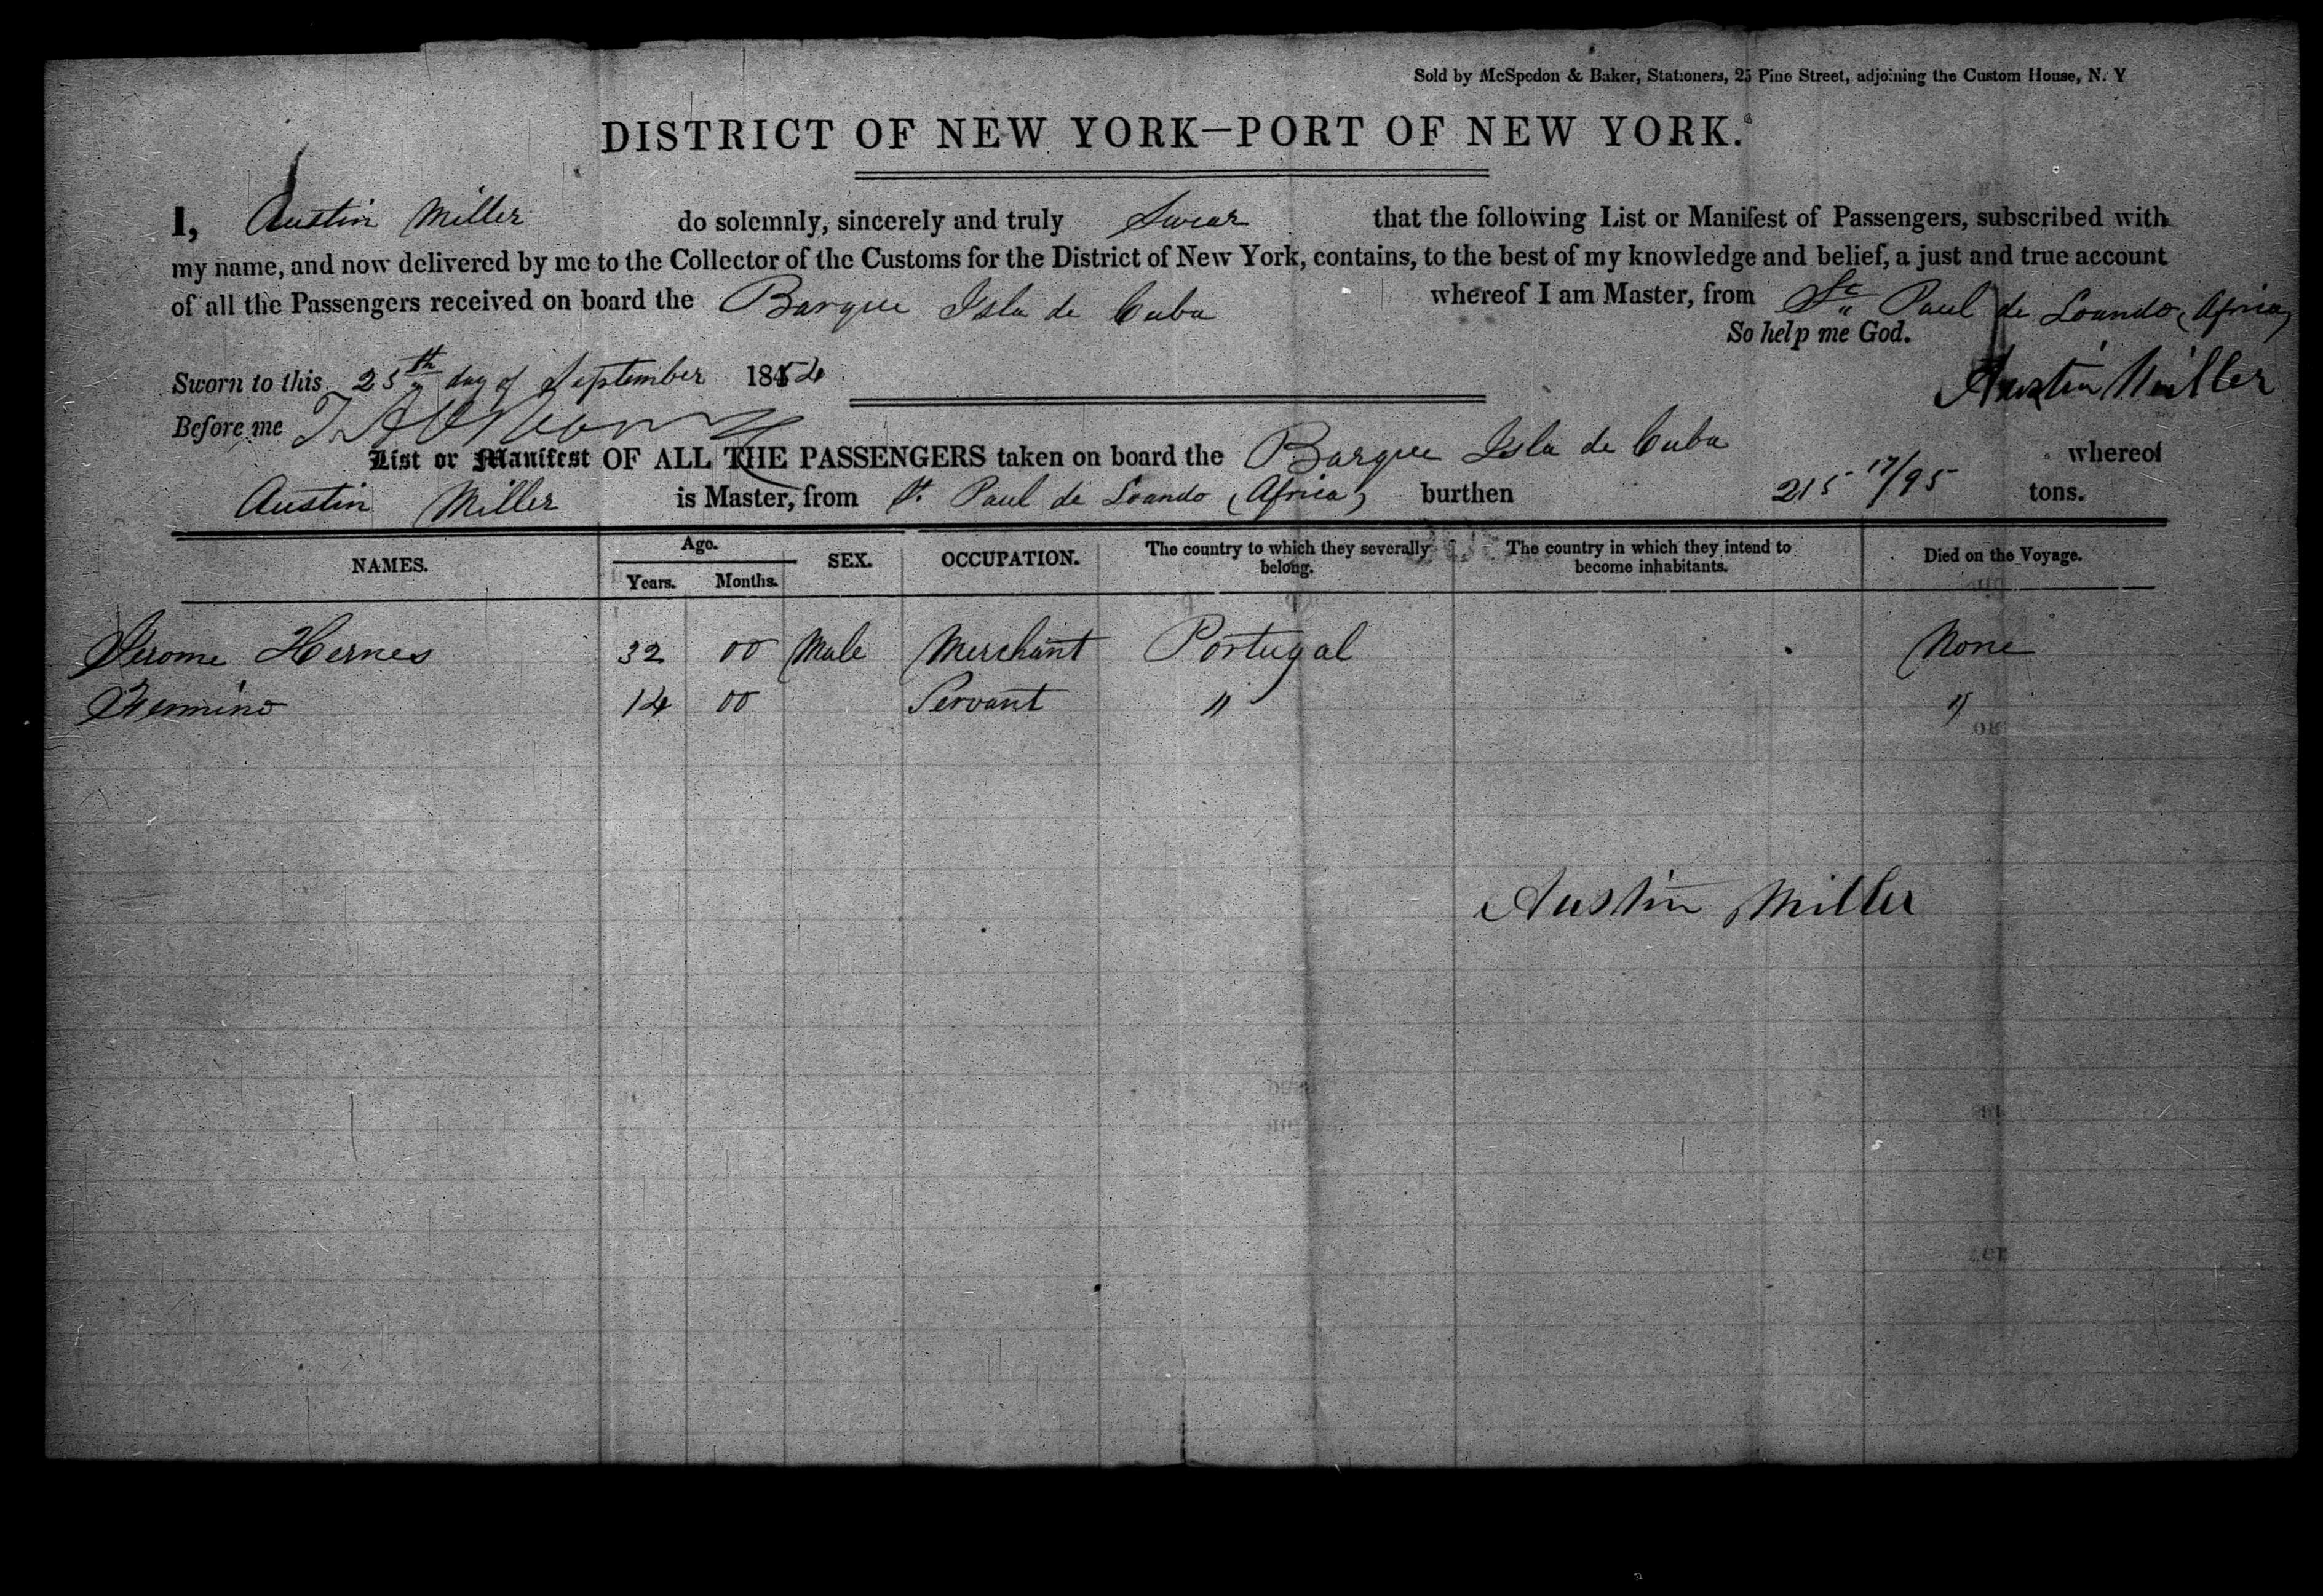 Sold by McSpedon & Baker, Stationers, 25 Pine Street, adjoining the Custom House, N. Y
DISTRICT OF NEW YORK—PORT OF NEW YORK.
I, Austin Miller do solemnly, sincerely and truly Swear that the following List or Manifest of Passengers, subscribed with
my name, and now delivered by me to the Collector of the Customs for the District of New York, contains, to the best of my knowledge and belief, a just and true account
of all the Passengers received on board the Barque Isla de Cuba whereof I am Master, from St Paul de Loando (Africa)
So help me God.
Sworn to this 25th day of September 1854
Austin Miller
Before me
List or Manifest OF ALL THE PASSENGERS taken on board the Barque Isla de Cuba whereof
Austin Miller is Master, from St. Paul de Loando (Africa) burthen 215 17/95 tons.
NAMES. Age. Years. Months. SEX. OCCUPATION. The country to which they severally belong. The country in which they intend to become inhabitants. Died on the Voyage.
Jerome Hernes 32 00 Male Merchant Portugal None
14 00 Servant " "
Austin Miller